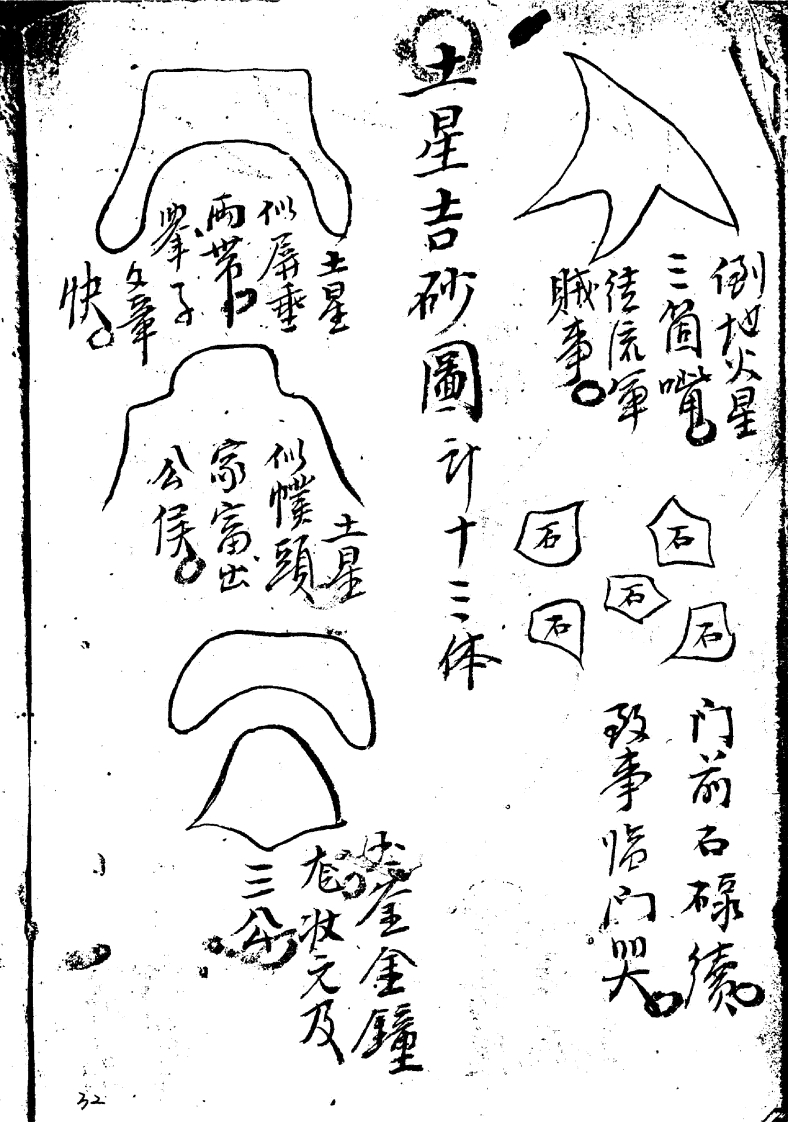 倒地火星
三箇嘴
徒流軍
賊事
石
石
石
石
石
门前石碌續
致事临门哭
土星吉砂圖计十三体
土星
似屏垂
兩带
举子
文章
快
土星
似幞頭
家富出
公侯
金金鐘
状元及
三公
32